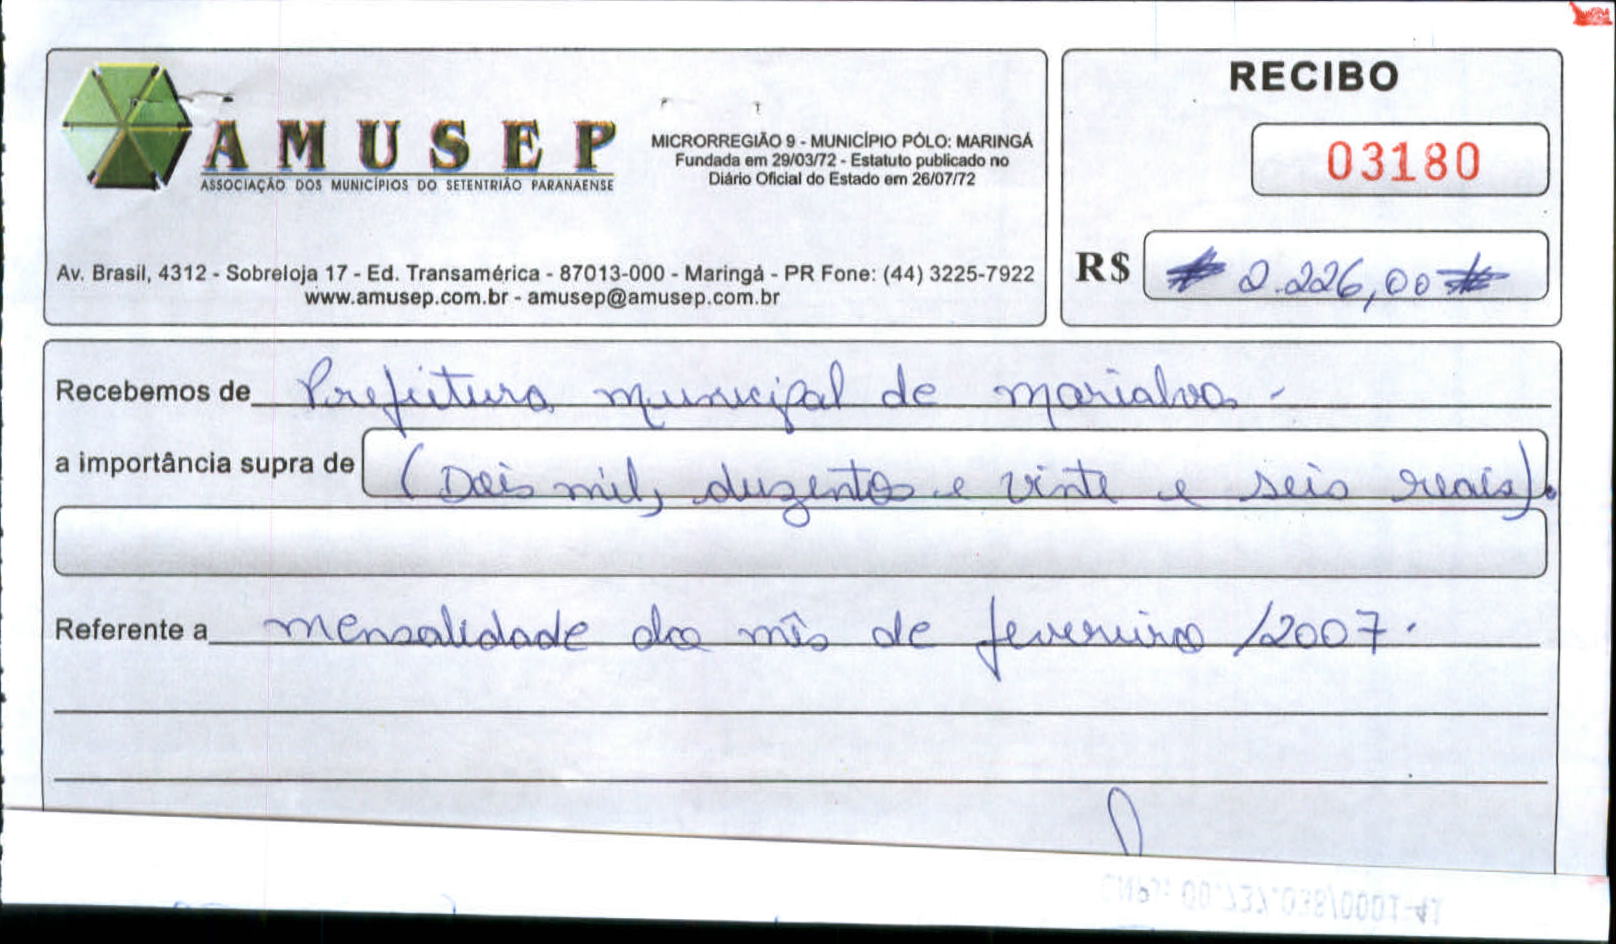 AMUSEP
ASSOCIAÇÃO DOS MUNICÍPIOS DO SETENTRIÃO PARANAENSE
MICRORREGIÃO 9 - MUNICÍPIO PÓLO: MARINGÁ
Fundada em 29/03/72 - Estatuto publicado no
Diário Oficial do Estado em 26/07/72
Av. Brasil, 4312 - Sobreloja 17 - Ed. Transamérica - 87013-000 - Maringá - PR Fone: (44) 3225-7922
www.amusep.com.br - amusep@amusep.com.br
RECIBO
03180
R$ # 2.226,00 #
Recebemos de Prefeitura municipal de marialva -
a importância supra de (Dois mil, duzentos e vinte e seis reais).
Referente a mensalidade do mês de fevereiro /2007.
CNPJ: 00.737.038/0001-41